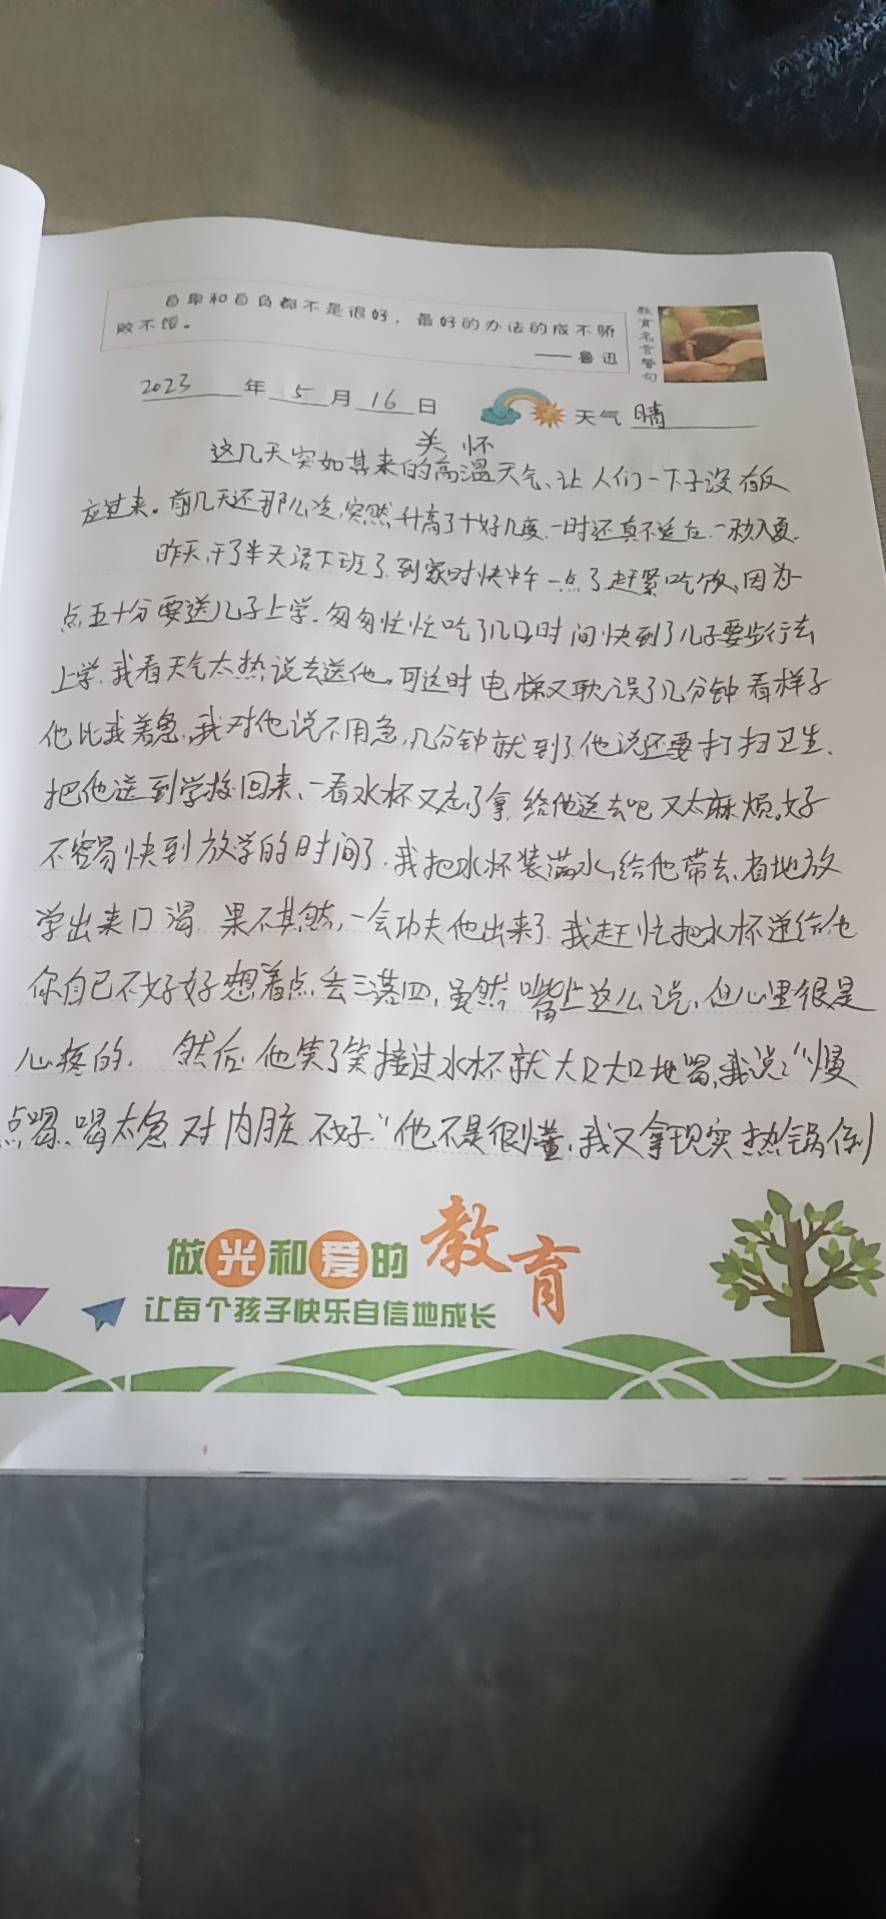 自卑和自负都不是很好，最好的办法的成不骄
败不馁。
——鲁迅
教育名言警句
2023年5月16日 天气 晴
关怀
这几天突如其来的高温天气、让人们一下子没有反
应过来。前几天还那么冷,突然升高了十好几度.一时还真不适应.一秒入夏.
昨天,干了半天活下班了.到家时快中午一点了.赶紧吃饭,因为一
点五十分要送儿子上学.匆匆忙忙吃了几口时间快到了儿子要步行去
上学.我看天气太热,说去送他,可这时电梯又耽误了几分钟看样子
他比我着急,我对他说不用急,几分钟就到了.他说还要打扫卫生、
把他送到学校回来、一看水杯又忘了拿.给他送去吧又太麻烦,好
不容易快到放学的时间了.我把水杯装满水,给他带去、省地放
学出来口渴.果不其然,一会功夫他出来了.我赶忙把水杯递给他
你自己不好好想着点.丢三落四,虽然嘴上这么说,但心里很是
心疼的. 然后他笑了笑接过水杯就大口大口地喝,我说:“慢
点喝、喝太急对内脏不好."他不是很懂,我又拿现实热锅倒
做光和爱的教育
让每个孩子快乐自信地成长